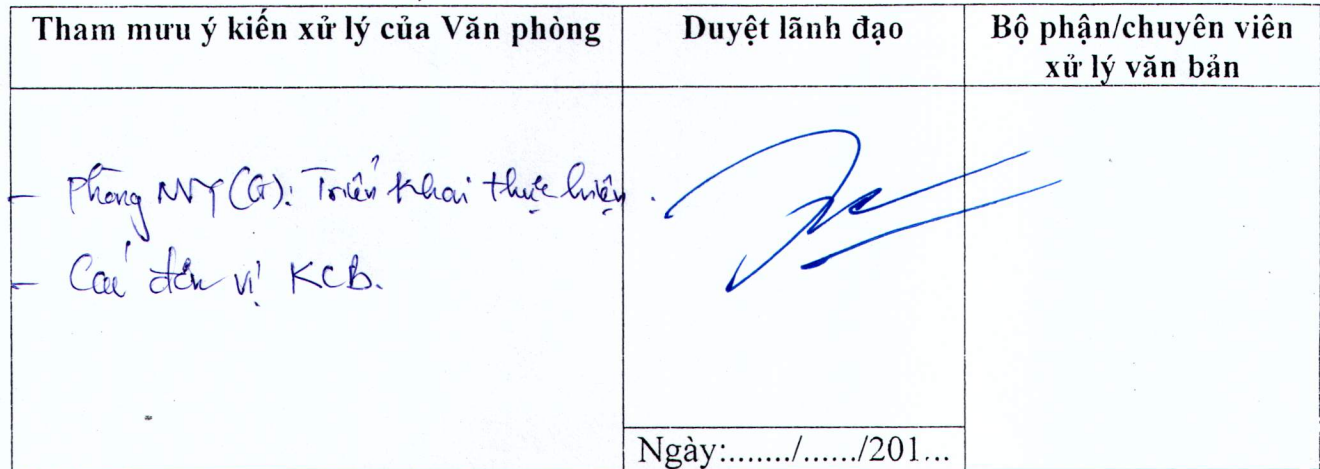 Tham mưu ý kiến xử lý của Văn phòng
Duyệt lãnh đạo
Bộ phận/chuyên viên
xử lý văn bản
- Phòng NVY (G): Triển khai thực hiện.
- Các đơn vị KCB.
Ngày:......./....../201...